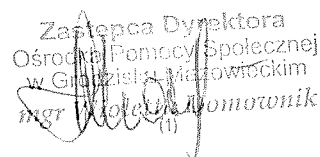 Zastępca Dyrektora
Ośrodka Pomocy Społecznej
w Grodzisku Mazowieckim
mgr Wioletta Domownik
(1)